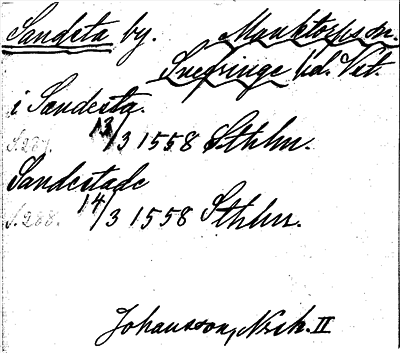 Sandsta by. Marktorps sn.
Svefringe hd. Vst.
i Sandesta.
S. 287. 13/3 1558 Sthlm.
Sandestade
S. 288. 14/3 1558 Sthlm.
Johansson, Nzch. II